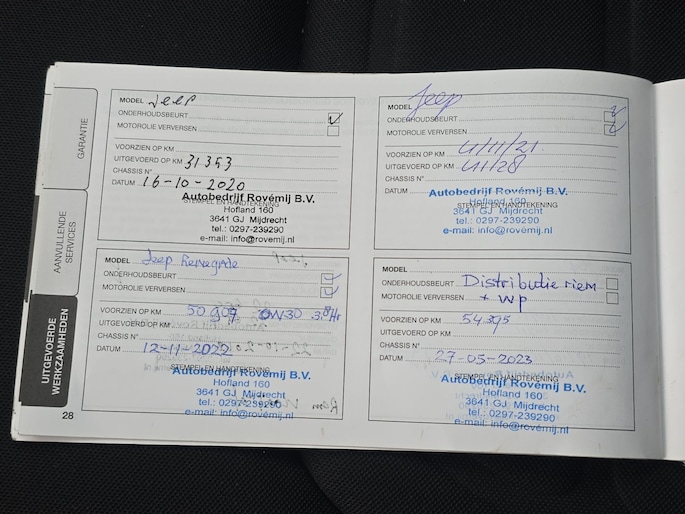 GARANTIE
AANVULLENDE
SERVICES
UITGEVOERDE
WERKZAAMHEDEN
MODEL Jeep
ONDERHOUDSBEURT
MOTOROLIE VERVERSEN
VOORZIEN OP KM
UITGEVOERD OP KM 31353
CHASSIS N°
DATUM 16-10-2020
STEMPEL EN HANDTEKENING
Autobedrijf Rovémij B.V.
Hofland 160
3641 GJ Mijdrecht
tel.: 0297-239290
e-mail: info@rovemij.nl
MODEL Jeep
ONDERHOUDSBEURT
MOTOROLIE VERVERSEN
VOORZIEN OP KM
UITGEVOERD OP KM
CHASSIS N°
DATUM
STEMPEL EN HANDTEKENING
Autobedrijf Rovémij B.V.
Hofland 160
3641 GJ Mijdrecht
tel.: 0297-239290
e-mail: info@rovemij.nl
MODEL Jeep Renegade
ONDERHOUDSBEURT
MOTOROLIE VERVERSEN
VOORZIEN OP KM 0W30
UITGEVOERD OP KM
CHASSIS N°
DATUM 12-11-2022
STEMPEL EN HANDTEKENING
Autobedrijf Rovémij B.V.
Hofland 160
3641 GJ Mijdrecht
tel.: 0297-239290
e-mail: info@rovemij.nl
MODEL
ONDERHOUDSBEURT Distributie riem
MOTOROLIE VERVERSEN + WP
VOORZIEN OP KM 54395
UITGEVOERD OP KM
CHASSIS N°
DATUM 27-05-2023
STEMPEL EN HANDTEKENING
Autobedrijf Rovémij B.V.
Hofland 160
3641 GJ Mijdrecht
tel.: 0297-239290
e-mail: info@rovemij.nl
28